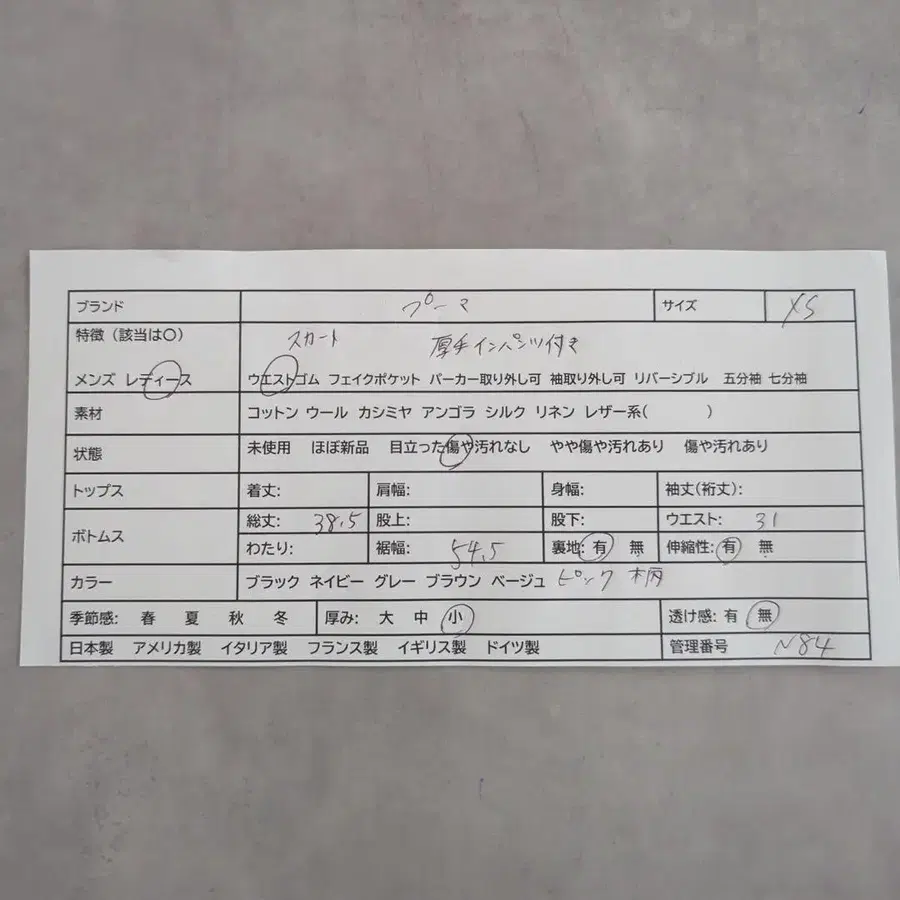 ブランド プーマ サイズ XS
特徴（該当は〇） スカート 厚手インパンツ付き
メンズ レディース ウエストゴム フェイクポケット パーカー取り外し可 袖取り外し可 リバーシブル 五分袖 七分袖
素材 コットン ウール カシミヤ アンゴラ シルク リネン レザー系( )
状態 未使用 ほぼ新品 目立った傷や汚れなし やや傷や汚れあり 傷や汚れあり
トップス 着丈: 肩幅: 身幅: 袖丈(裄丈):
ボトムス 総丈: 38.5 股上: 股下: ウエスト: 31
わたり: 裾幅: 54.5 裏地: 有 無 伸縮性: 有 無
カラー ブラック ネイビー グレー ブラウン ベージュ ピンク 柄
季節感: 春 夏 秋 冬 厚み: 大 中 小 透け感: 有 無
日本製 アメリカ製 イタリア製 フランス製 イギリス製 ドイツ製 管理番号 N84